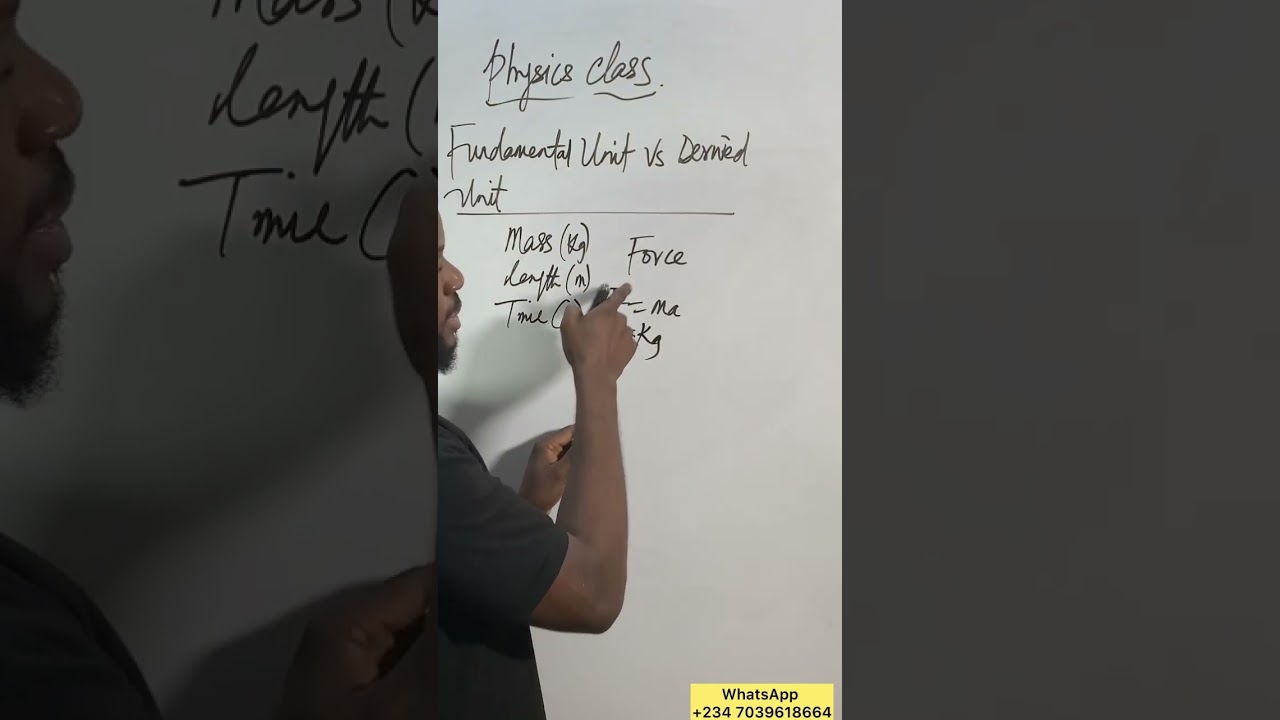 Physics class.
Fundamental Unit vs Derived
Unit
Mass (kg)
Length (m)
Time (
Force
= ma
=kg
WhatsApp
+234 7039618664